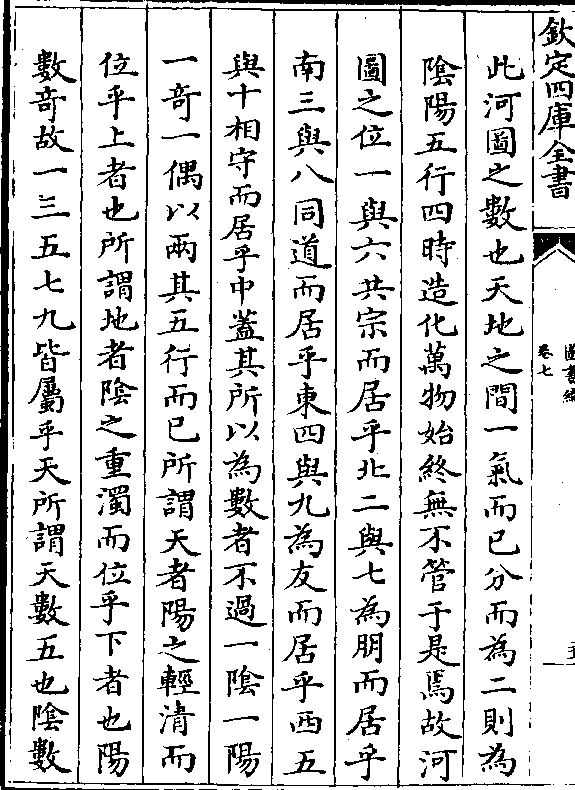 欽定四庫全書
圖書編
卷七
此河圖之數也天地之間一氣而已分而為二則為
陰陽五行四時造化萬物始終無不管于是焉故河
圖之位一與六共宗而居乎北二與七為朋而居乎
南三與八同道而居乎東四與九為友而居乎西五
與十相守而居乎中蓋其所以為數者不過一陰一陽
一奇一偶以兩其五行而已所謂天者陽之輕清而
位乎上者也所謂地者陰之重濁而位乎下者也陽
數奇故一三五七九皆屬乎天所謂天數五也陰數